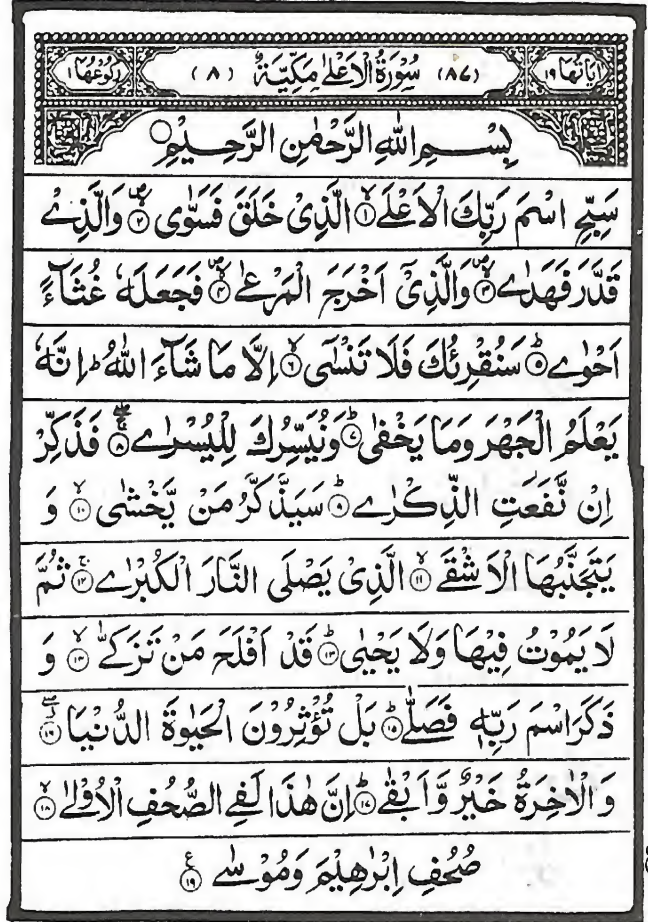 اٰيَاتُهَا ١٩ (٨٧) سُوْرَةُ الْاَعْلٰى مَكِّيَّةٌ (٨) رُكُوْعُهَا ١
بِسْمِ اللّٰهِ الرَّحْمٰنِ الرَّحِيْمِ ○
سَبِّحِ اسْمَ رَبِّكَ الْاَعْلَے ۙ﴿١﴾ الَّذِیْ خَلَقَ فَسَوّٰی ۪ۙ﴿٢﴾ وَالَّذِےْ
قَدَّرَ فَهَدٰے ۪ۙ﴿٣﴾ وَالَّذِیْۤ اَخْرَجَ الْمَرْعٰے ۪ۙ﴿٤﴾ فَجَعَلَهٗ غُثَآءً
اَحْوٰے ؕ﴿٥﴾ سَنُقْرِئُكَ فَلَا تَنْسٰۤی ۙ﴿٦﴾ اِلَّا مَا شَآءَ اللّٰهُ ؕ اِنَّهٗ
يَعْلَمُ الْجَهْرَ وَمَا يَخْفٰی ؕ﴿٧﴾ وَنُيَسِّرُكَ لِلْيُسْرٰے ۚۖ﴿٨﴾ فَذَكِّرْ
اِنْ نَّفَعَتِ الذِّكْرٰے ؕ﴿٩﴾ سَيَذَّكَّرُ مَنْ يَّخْشٰی ۙ﴿١٠﴾ وَ
يَتَجَنَّبُهَا الْاَشْقَے ۙ﴿١١﴾ الَّذِیْ يَصْلَی النَّارَ الْكُبْرٰے ۚ﴿١٢﴾ ثُمَّ
لَا يَمُوْتُ فِيْهَا وَلَا يَحْيٰی ؕ﴿١٣﴾ قَدْ اَفْلَحَ مَنْ تَزَكّٰے ۙ﴿١٤﴾ وَ
ذَكَرَ اسْمَ رَبِّهٖ فَصَلّٰے ؕ﴿١٥﴾ بَلْ تُؤْثِرُوْنَ الْحَيٰوةَ الدُّنْيَا ۚۖ﴿١٦﴾
وَالْاٰخِرَةُ خَيْرٌ وَّاَبْقٰے ؕ﴿١٧﴾ اِنَّ هٰذَا لَفِے الصُّحُفِ الْاُوْلٰے ۙ﴿١٨﴾
صُحُفِ اِبْرٰهِيْمَ وَمُوْسٰے ﴿١٩﴾ ع